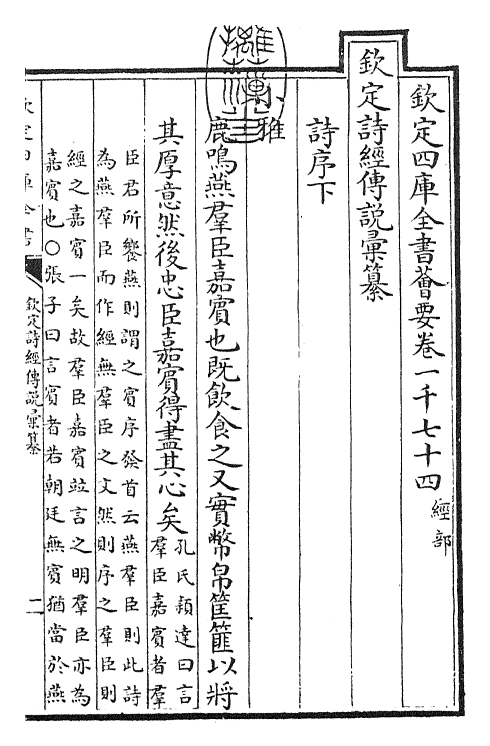 欽定四庫全書薈要卷一千七十四 經部
欽定詩經傳說彙纂
詩序下
小雅
鹿鳴燕羣臣嘉賓也既飲食之又實幣帛筐篚以將
其厚意然後忠臣嘉賓得盡其心矣
孔氏穎達曰言
羣臣嘉賓者羣
臣君所饗燕則謂之賓序發首云燕羣臣則此詩
為燕羣臣而作經無羣臣之文然則序之羣臣則
經之嘉賓一矣故羣臣嘉賓竝言之明羣臣亦為
嘉賓也○張子曰言賓者若朝廷無賓猶當於燕
欽定四庫全書
欽定詩經傳說彙纂